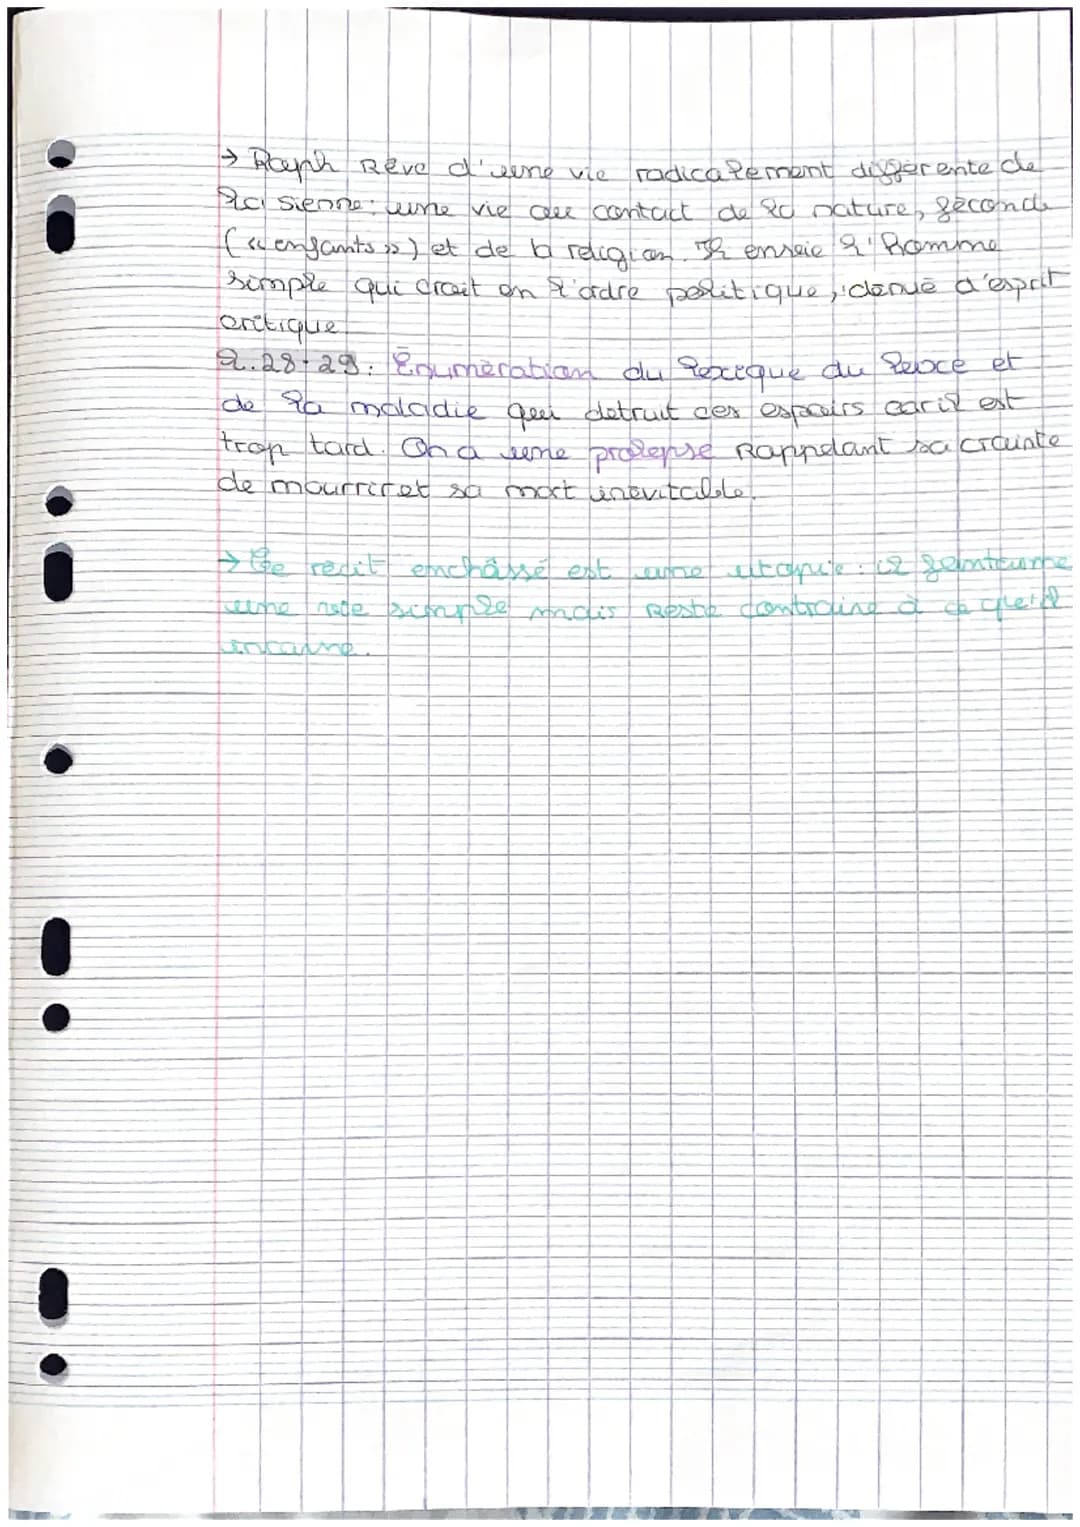 → Raph Rêve d'une vie radicalement différente de
la sienne: une vie au contact de la nature, féconde
(« enfants ») et de la religion. Il envie l'homme
simple qui croit en l'ordre politique, dénué d'esprit
critique
l.28-29: Énumération du lexique du luxe et
de la maladie qui detruit ces espoirs car il est
trop tard. On a une prolepse Rappelant sa crainte
de mourrir et sa mort inévitable.
→ Ce récit enchâssé est une utopie: il
une vie simple mais Reste contraire à ce qu'il
incarne.